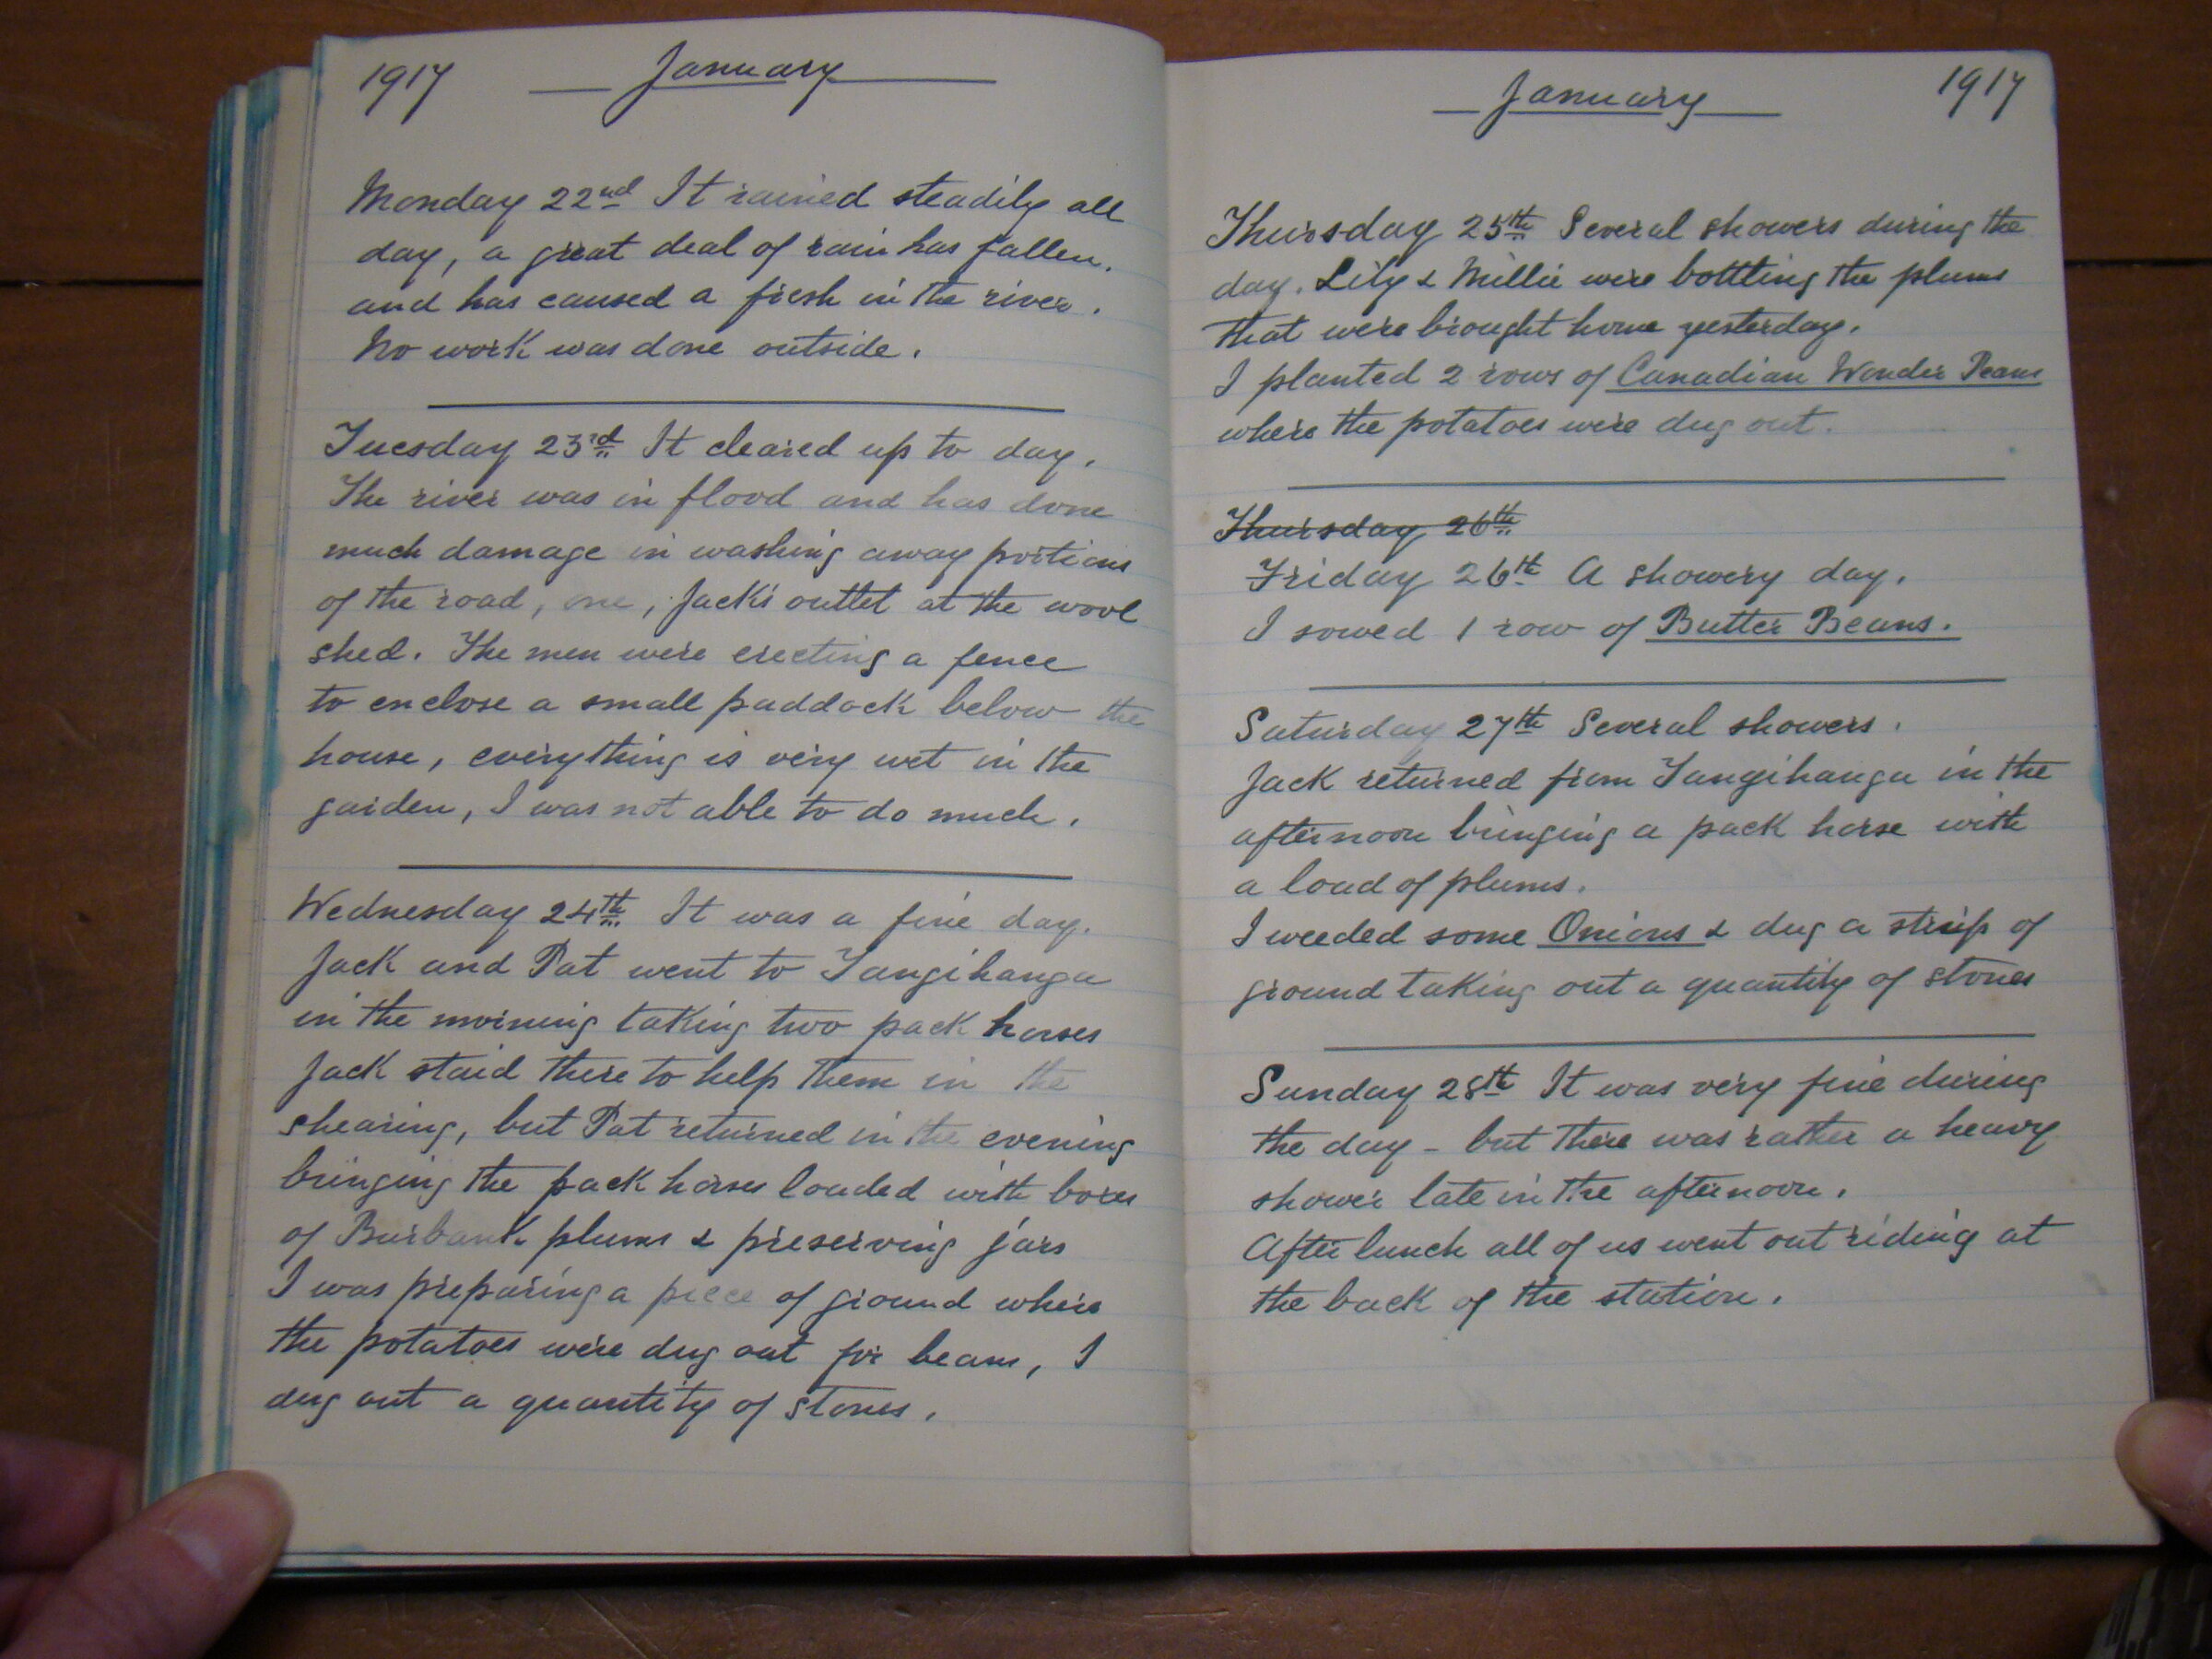 1917 January
Monday 22nd It rained steadily all
day, a great deal of rain has fallen.
and has caused a fresh in the river.
No work was done outside.
Tuesday 23rd It cleared up to day.
The river was in flood and has done
much damage in washing away portions
of the road, one, Jack's outlet at the wool
shed. The men were erecting a fence
to enclose a small paddock below the
house, everything is very wet in the
garden, I was not able to do much.
Wednesday 24th It was a fine day.
Jack and Pat went to Tangihanga
in the morning taking two pack horses
Jack staid there to help them in the
shearing, but Pat returned in the evening
bringing the pack horses loaded with boxes
of Burbank plums & preserving jars
I was preparing a piece of ground where
the potatoes were dug out for beans, I
dug out a quantity of stones.
January 1917
Thursday 25th Several showers during the
day. Lily & Millie were bottling the plums
that were brought home yesterday.
I planted 2 rows of Canadian Wonder Beans
where the potatoes were dug out.
Thursday 26th
Friday 26th A showery day.
I sowed 1 row of Butter Beans.
Saturday 27th Several showers.
Jack returned from Tangihanga in the
afternoon bringing a pack horse with
a load of plums.
I weeded some Onions & dug a strip of
ground taking out a quantity of stones
Sunday 28th It was very fine during
the day - but there was rather a heavy
shower late in the afternoon.
After lunch all of us went out riding at
the back of the station.